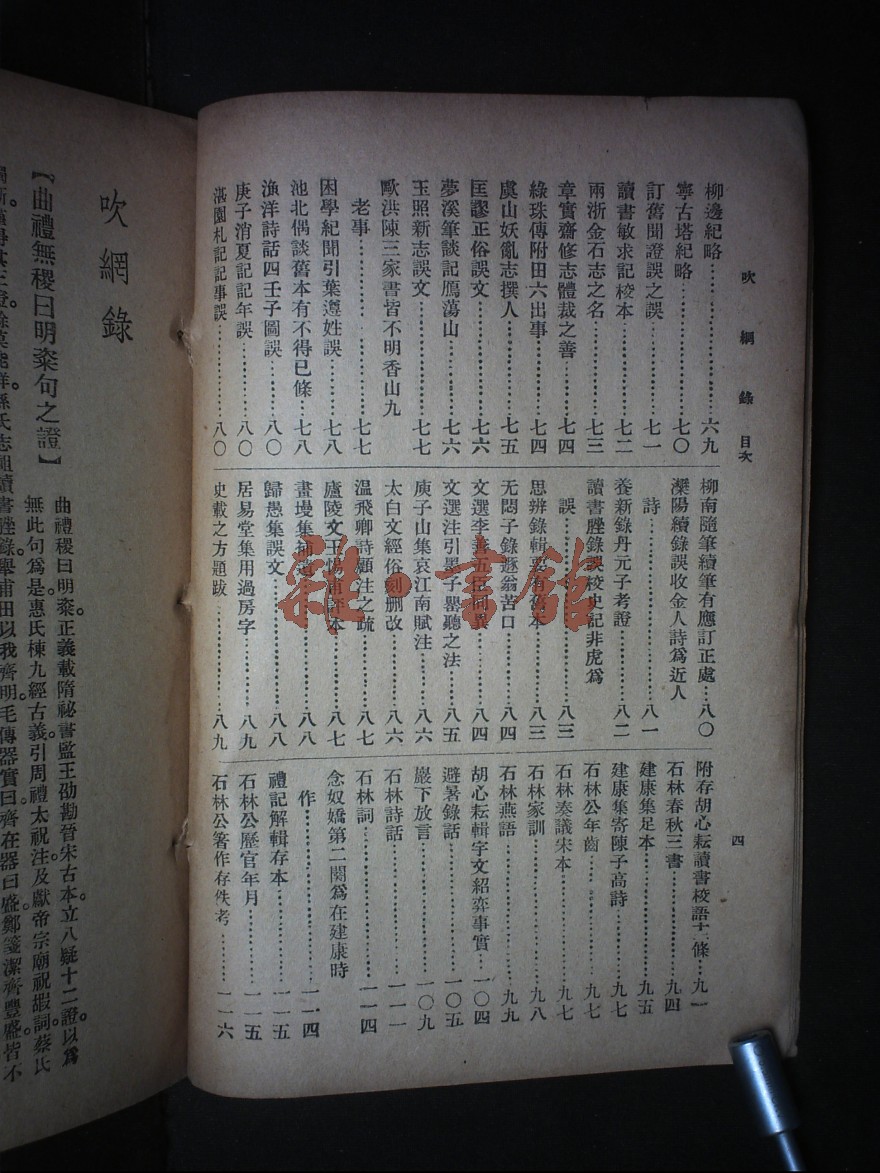 吹網錄 目次
四
柳邊紀略……六九
寧古塔紀略……七〇
訂舊聞證誤之誤……七一
讀書敏求記校本……七二
兩浙金石志之名……七三
章實齋修志體裁之善……七四
綠珠傳附田六出事……七四
虞山妖亂志撰人……七五
匡謬正俗誤文……七六
夢溪筆談記鴈蕩山……七六
玉照新志誤文……七七
歐洪陳三家書皆不明香山九
老事……七七
困學紀聞引葉遵姓誤……七八
池北偶談舊本有不得已條……七八
漁洋詩話四壬子圖誤……八〇
庚子消夏記記年誤……八〇
湛園札記記事誤……八〇
柳南隨筆續筆有應訂正處…八〇
灤陽續錄誤收金人詩爲近人
詩……八一
養新錄丹元子考證……八二
讀書脞錄誤校史記非虎爲
誤……八三
思辨錄輯要有舊本……八三
无悶子錄豚翁苦口……八四
文選李善五臣同異……八四
文選注引墨子罌聽之法……八五
庾子山集哀江南賦注……八六
太白文經俗刻刪改……八六
溫飛卿詩顧注之疏……八七
廬陵文王惕甫評本……八七
畫墁集補遺……八八
歸愚集誤文……八八
居易堂集用過房字……八九
史載之方題跋……八九
附存胡心耘讀書校語十二條…九一
石林春秋三書……九四
建康集足本……九五
建康集寄陳子高詩……九七
石林公年齒……九七
石林奏議宋本……九七
石林家訓……九八
石林燕語……九九
胡心耘輯宇文紹奕事實…一〇四
避暑錄話……一〇五
巖下放言……一〇九
石林詩話……一一一
石林詞……一一四
念奴嬌第二闋爲在建康時
作……一一四
禮記解輯存本……一一五
石林公歷官年月……一一五
石林公箸作存佚考……一一六
吹網錄
【曲禮無稷曰明粢句之證】
曲禮稷曰明粢。正義載隋祕書監王劭勘晉宋古本。立八疑十二證。以爲
無此句爲是。惠氏棟九經古義引周禮太祝注。及獻帝宗廟祝嘏詞。蔡氏
書脞錄。舉甫田以我齊明。毛傳器實曰齊。在器曰盛。鄭箋潔齊豐盛。皆不
雜·書館